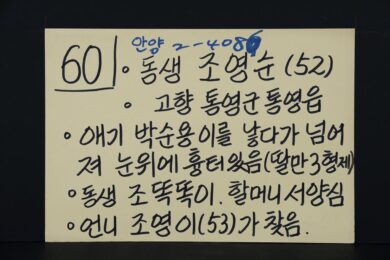 안양 2-4086
60 ◦ 동생 조영순 (52)
◦ 고향 통영군 통영읍
◦ 애기 박순용이를 낳다가 넘어
져 눈위에 흉터있음(딸만3형제)
◦ 동생 조똑똑이. 할머니 서양심
◦ 언니 조영이(53)가 찾음.